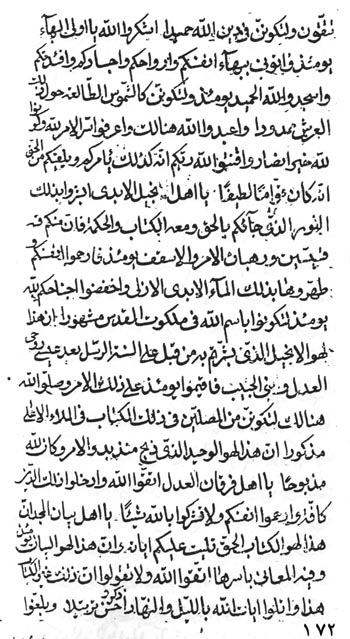 تتقون ولتكونن في دين الله حميدا ابتكروا الله يا اولي البهآء
يومئذ وابوني ببهآء انفسكم وارواحكم واجسادكم وافئدتكم
واسجدوا لله الحميد يومئذ ولتكونن كالشموس الطالعة حول ذلك
العرش ممدودا واعبدوا الله هنالك واعرفوا امر الله وكونوا
لله خير انصار واقنتوا الله ربكم انه كذلك يأمركم ويلقيكم من الحق
انه كان قواما لطيفا يا اهل انجيل الابدي ابرزوا بذلك
النور الذي جآءكم بالحق ومعه الكتاب والحكمة فان منكم
قسيسين ورهبان الامر والاسقف يومئذ فارحموا انفسكم و
طهروها بذلك المآء الابدي الازلي واخفضوا اجناحكم لله
يومئذ لتكونوا باسم الله في ملكوت القدس مشهورا ان هذا
لهو الانجيل الذي بشرتم به من قبل على السنة الرسل بعد عيسى روحي
العدل وبني الحبيب فاقيموا يومئذ على ذلك الامر وصلوا لله
هنالك لتكونن من المصلين في ذلك الكتاب في الملاء الاعلى
مذكورا ان هذا لهو الوحيد الذي ذبح منذ بدو الامر وكان لله
مذبوحا يا اهل فرقان العدل اتقوا الله وادخلوا ذلك الدين
كافة وارحموا انفسكم ولا تشركوا بالله شيئا يا اهل بيان الجد ان
هذا لهو الكتاب الحق تليت عليكم اياته وان هذا لهو البيان
وفيه المعاني باسرها اتقوا الله ولا تقولوا ان
هذا واتلوا ايات الله بالليل والنهار احسن ترتيلا وبلغوا
١٧٢